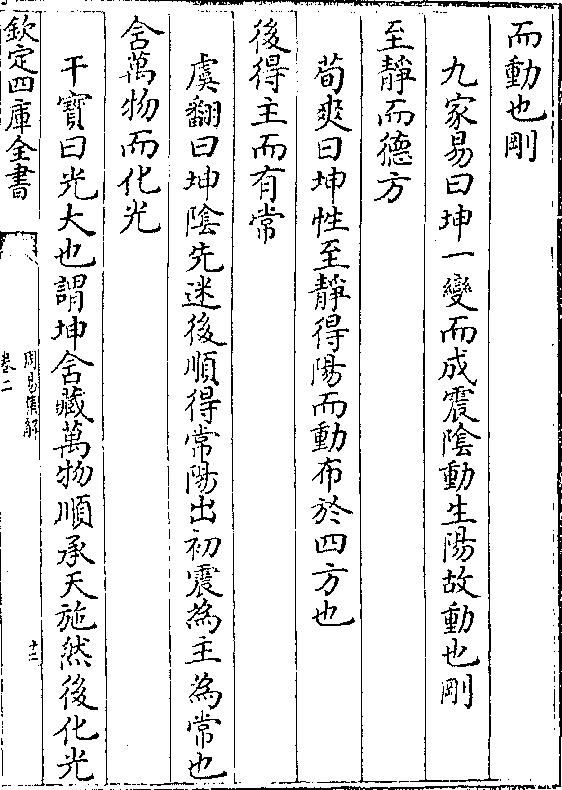 而動也剛
九家易曰坤一變而成震陰動生陽故動也剛
至靜而德方
荀爽曰坤性至靜得陽而動布於四方也
後得主而有常
虞翻曰坤陰先迷後順得常陽出初震為主為常也
含萬物而化光
干寶曰光大也謂坤含藏萬物順承天施然後化光
欽定四庫全書
周易集解
卷二
十二